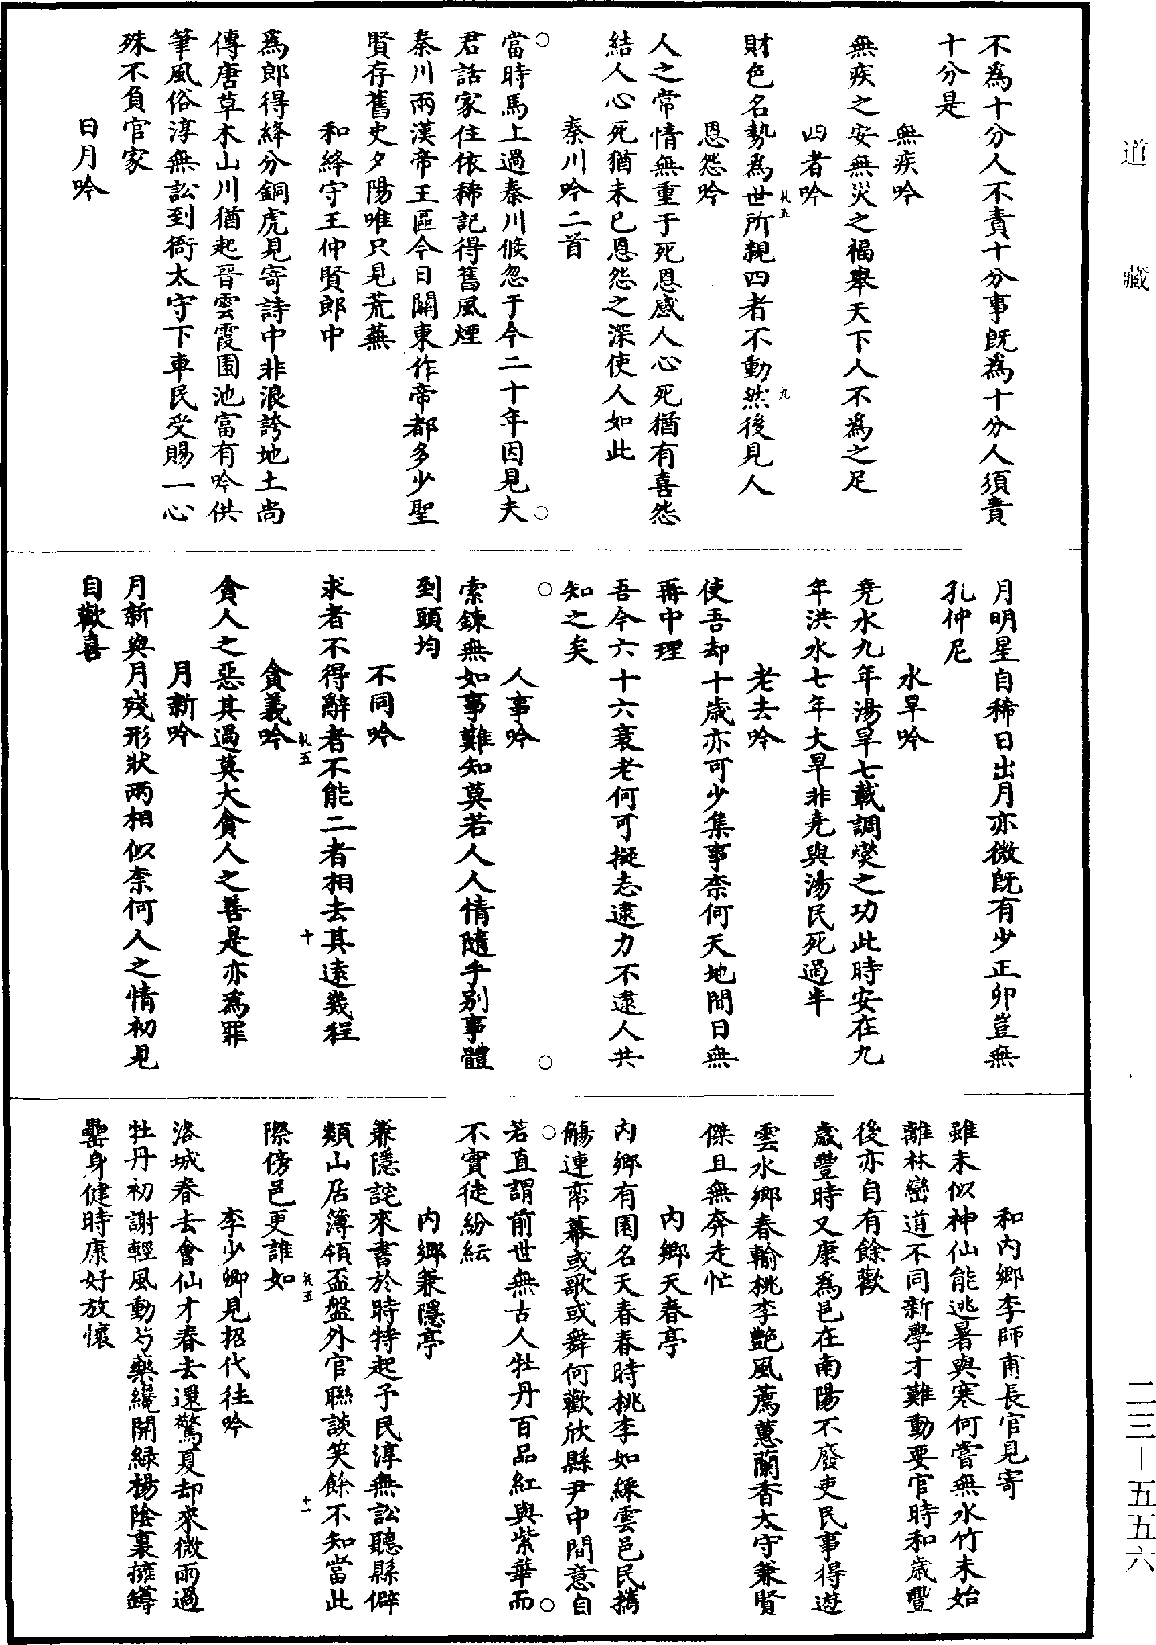 道藏
不為十分人不責十分事既為十分人須責
十分是
無疾吟
無疾之安無災之福舉天下人不為之足
四者吟
財色名勢為世所親四者不動然後見人
恩怨吟
人之常情無重于死恩感人心死猶有喜怨
結人心死猶未已恩怨之深使人如此
秦川吟二首
當時馬上過秦川倐忽于今二十年因見夫
君話家住依稀記得舊風煙
秦川兩漢帝王區今日關東作帝都多少聖
賢存舊史夕陽唯只見荒蕪
和絳守王仲賢郎中
為郎得絳分銅虎見寄詩中非浪誇地土尚
傳唐草木山川猶起晉雲霞園池富有吟供
筆風俗淳無訟到衙太守下車民受賜一心
殊不負官家
日月吟
月明星自稀日出月亦微既有少正卯豈無
孔仲尼
水旱吟
堯水九年湯旱七載調燮之功此時安在九
年洪水七年大旱非堯與湯民死過半
老去吟
使吾却十歲亦可少集事柰何天地間日無
再中理
吾今六十六衰老何可擬志逮力不逮人共
知之矣
人事吟
索鍊無如事難知莫若人人情隨手别事體
到頭均
不同吟
求者不得辭者不能二者相去其遠幾程
貪義吟
貪人之惡其過莫大貪人之善是亦為罪
月新吟
月新與月殘形狀兩相似柰何人之情初見
自歡喜
和内鄉李師甫長官見寄
雖未似神仙能逃暑與寒何嘗無水竹未始
離林巒道不同新學才難動要官時和歲豐
後亦自有餘歡
歲豐時又康為邑在南陽不廢吏民事得遊
雲水鄉春輸桃李艷風薦蕙蘭香太守兼賢
傑且無奔走忙
内鄉天春亭
内鄉有園名天春春時桃李如綵雲邑民擕
觴連帟幕或歌或舞何歡欣縣尹中間意自
若直謂前世無古人牡丹百品紅與紫華而
不實徒紛紜
内鄉兼隱亭
兼隱詫來書於時特起予民淳無訟聽縣僻
類山居簿領盃盤外官聯談笑餘不知當此
際傍邑更誰如
李少卿見招代往吟
洛城春去會仙才春去還驚夏却來微雨過
牡丹初謝輕風動芍藥纔開緑楊陰裏擁罇
罍身健時康好放懷
二三—五五六